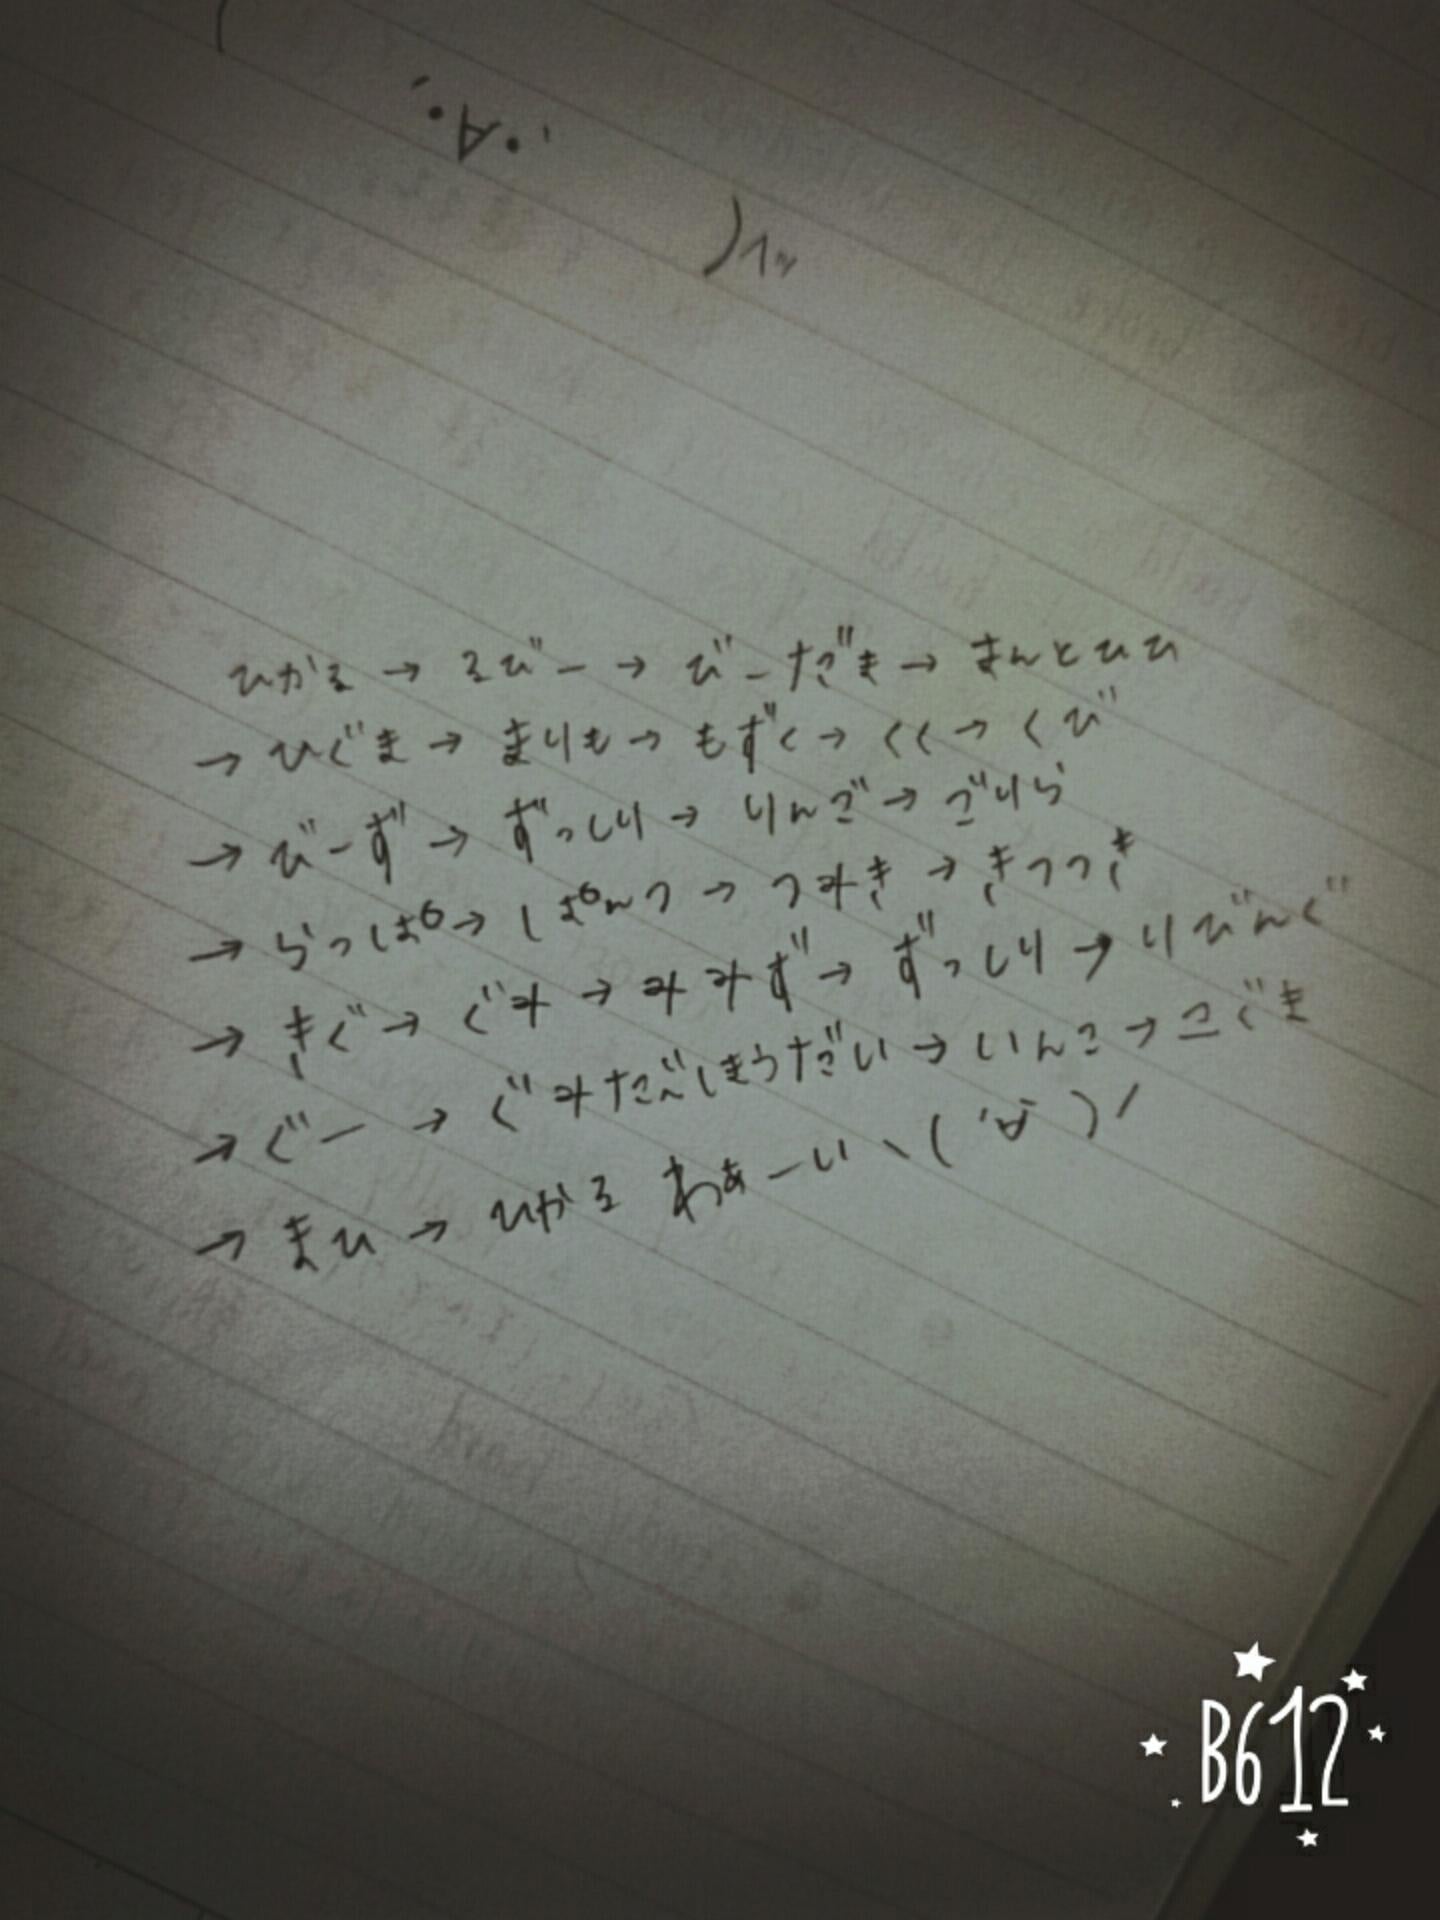 ひかる→るびー→びーだま→まんとひひ
→ひぐま→まりも→もずく→くく→くび
→びーず→ずっしり→りんご→ごりら
→らっぱ→しぱんつ→つみき→きつつき
→きぐ→ぐみ→みみず→ずっしり→りびんぐ
→ぐー→ぐみだべしまうだい→いんこ→こぐま
→まひ→ひかる わぁーい ヽ( '∀' )ノ
B612